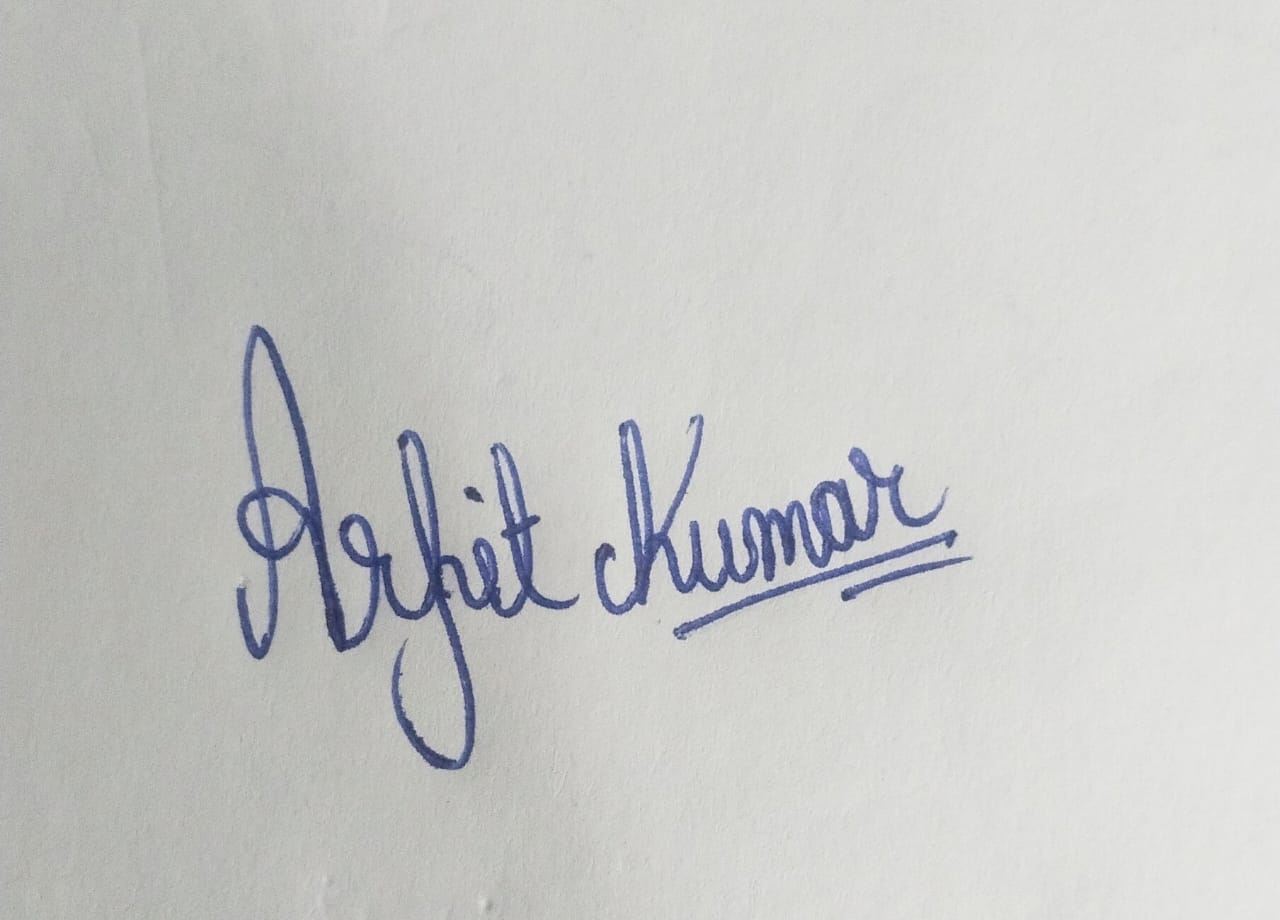 Arpit Kumar